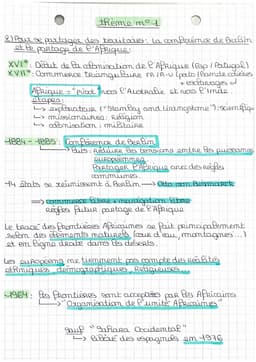 thème n°1
2) Pour se partager des territoires: la conférence de Berlin
et le partage de l'Afrique:
XVI° : Début de la colonisation de l'Afrique (Esp / Portugal)
XVII° : Commerce triangulaire
+ esclavages
Afrique = "pivot" vers l'Australie et vers l'Inde
étapes:
↳ explorateur ("Stanley and Livingstone"): scientifique
→ missionnaires: religion
→ colonisation: militaire
1884 - 1885: Conférence de Berlin
↳ buts: Réduire les tensions entre les puissances
européennes
Partager l'Afrique avec des règles
communes
14 états se réunissent à Berlin → Otto von Bismarck
⟹ commerce libre + navigation libre
règles futur partage de l'Afrique
Le tracé des frontières Africaines se fait principalement
selon des éléments naturels (cours d'eau, montagnes...)
et en ligne droite dans les déserts.
Les européens ne tiennent pas compte des réalités
ethniques, démographiques, religieuses...
1964: les frontières sont acceptées par les Africains
↳ "Organisation de l'unité Africaines"
sauf "Sahara Occidental"
↳ des espagnols en 1976